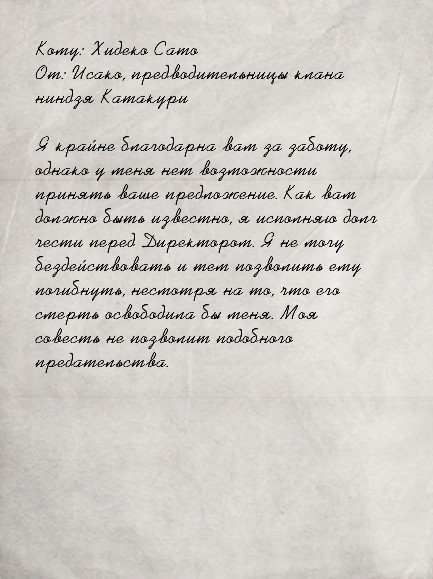 Кому: Хидеко Сато
От: Исако, предводительницы клана
ниндзя Катакури
Я крайне благодарна вам за заботу,
однако у меня нет возможности
принять ваше предложение. Как вам
должно быть известно, я исполняю долг
чести перед Директором. Я не могу
бездействовать и тем позволить ему
погибнуть, несмотря на то, что его
смерть освободила бы меня. Моя
совесть не позволит подобного
предательства.